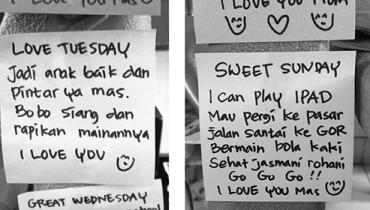 I LOVE YOU Mas
LOVE TUESDAY
Jadi anak baik dan
Pintar ya mas.
Bobo siang dan
rapikan mainannya
I LOVE YOU
GREAT WEDNESDAY
school
I LOVE YOU MOM
SWEET SUNDAY
I Can Play IPAD
Mau pergi ke pasar
jalan santai ke GOR
Bermain bola kaki
Sehat jasmani rohani
Go Go Go !!
I LOVE YOU Mas